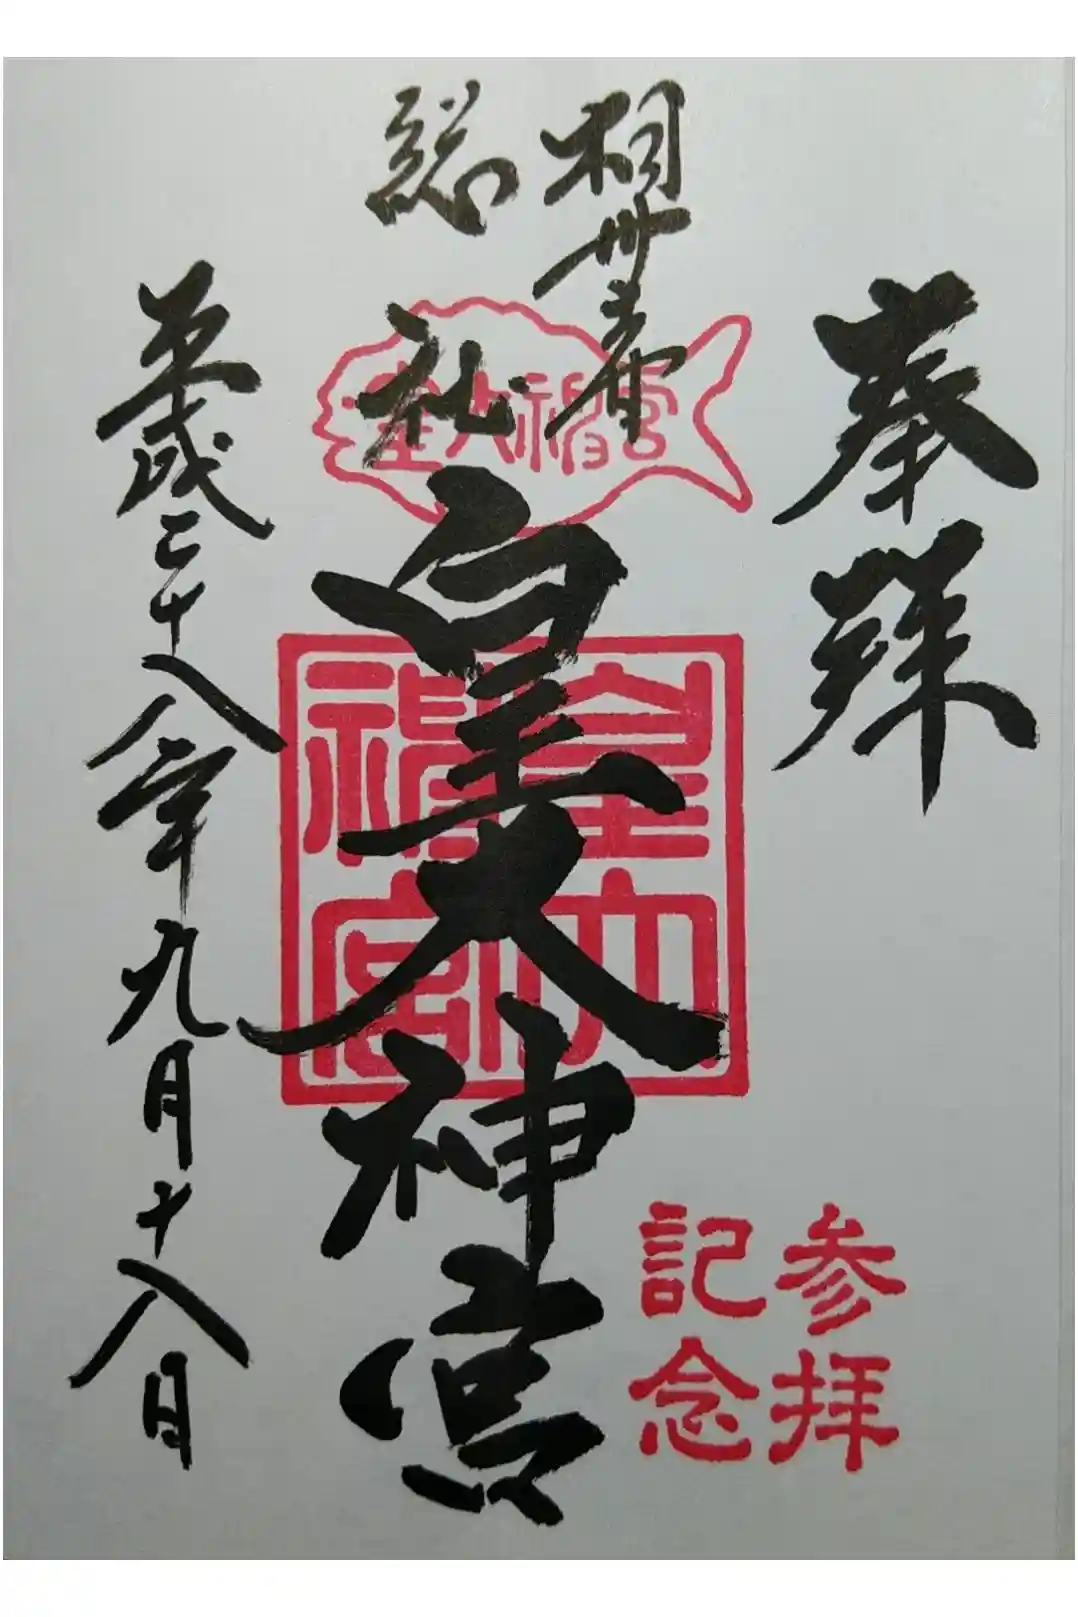 奉拝
相州土甘
総社
皇大神宮
平成二十八年九月十八日
皇大神宮
皇大
神宮
参拝
記念